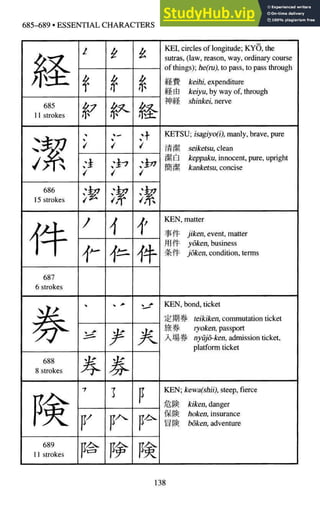 StudyHub.vip
100% plagiarism free
685–689 • ESSENTIAL CHARACTERS
経
685
11 strokes
KEI, circles of longitude; KYŌ, the
sutras, (law, reason, way, ordinary course
of things); he(ru), to pass, to pass through
経費 keihi, expenditure
経由 keiyu, by way of, through
神経 shinkei, nerve
潔
686
15 strokes
KETSU; isagiyo(i), manly, brave, pure
清潔 seiketsu, clean
潔白 keppaku, innocent, pure, upright
簡潔 kanketsu, concise
件
687
6 strokes
KEN, matter
事件 jiken, event, matter
用件 yōken, business
条件 jōken, condition, terms
券
688
8 strokes
KEN, bond, ticket
定期券 teikiken, commutation ticket
旅券 ryoken, passport
入場券 nyūjō-ken, admission ticket,
platform ticket
険
689
11 strokes
KEN; kewa(shii), steep, fierce
危険 kiken, danger
保険 hoken, insurance
冒険 bōken, adventure
138